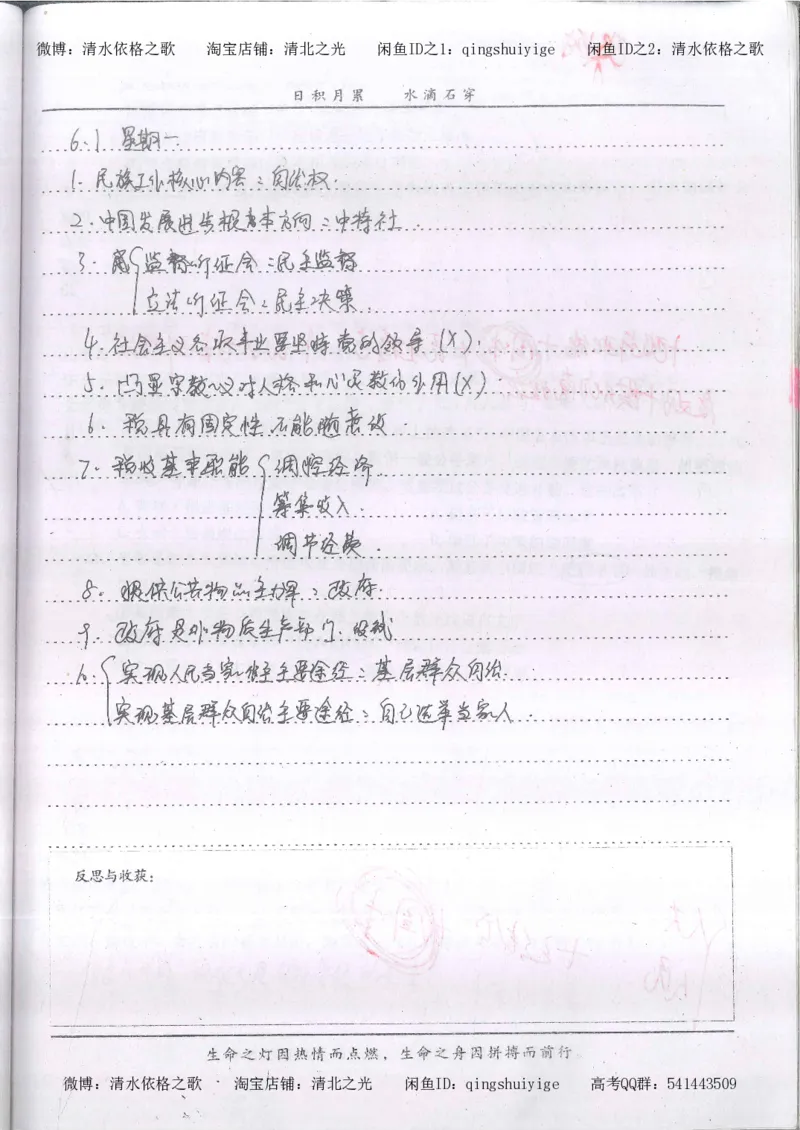 微博：清水依格之歌 淘宝店铺：清北之光 闲鱼ID之1：qingshuiyige 闲鱼ID之2：清水依格之歌
日积月累 水滴石穿
6.1 星期一
1. 民族工作核心内容：自治权.
2. 中国发展进步根本方向：中特社.
3. 监督听证会：民主监督
立法听证会：民主决策.
4. 社会主义各项事业要坚持党的领导(X).
5. 凸显宗教对人格和心灵教化作用(X).
6. 税具有固定性 不能随意改.
7. 税收基本职能 调控经济
筹集收入.
调节经济.
8. 提供公共物品主力军：政府.
9. 政府是非物质生产部门.
10. 实现人民当家做主主要途径：基层群众自治.
实现基层群众自治主要途径：自己选举当家人.
反思与收获：
生命之灯因热情而点燃，生命之舟因拼搏而前行
微博：清水依格之歌 淘宝店铺：清北之光 闲鱼ID：qingshuiyige 高考QQ群：541443509